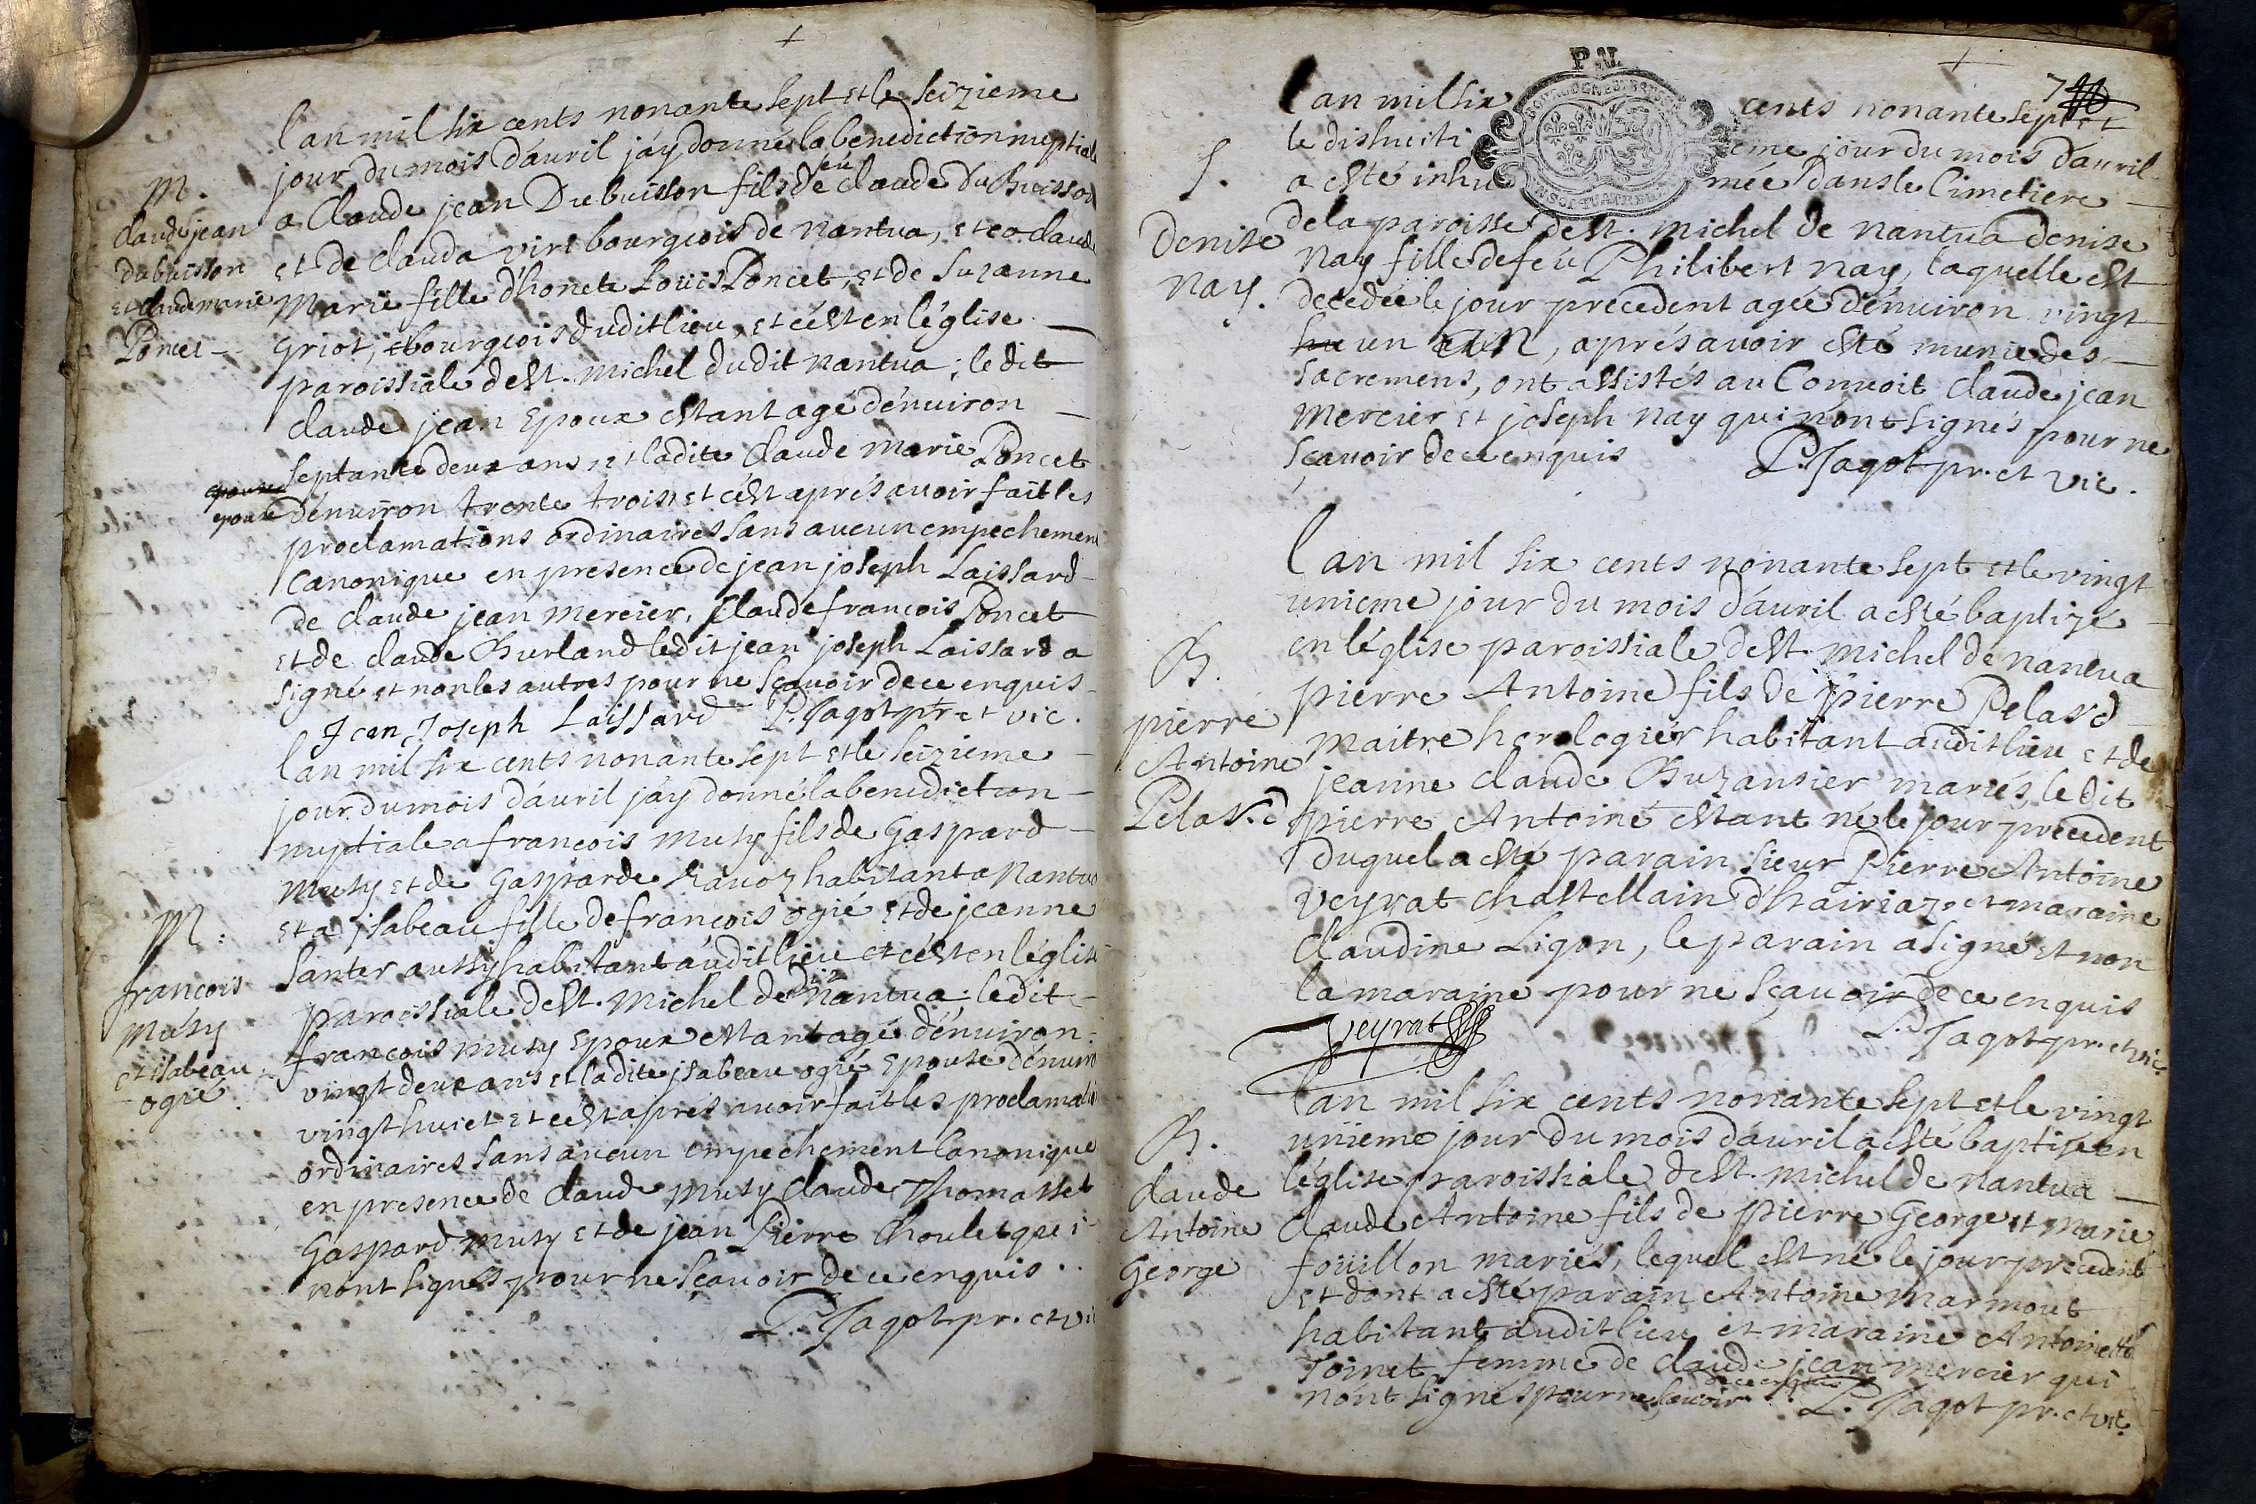 lan mil six cents nonante sept et le seizieme
jour du mois d'auril j'ay donné la benediction nuptiale
M.
a Claude jean Dubuisson fils de feu claude Dubuisson
claude jean
et de clauda viret bourgeois de nantua, et a claude
dubuisson
Marie fille d'honete Loüis Poncet, et de Suzanne
et claude marie
griot, bourgeois dudit lieu, et c'est en l'église
Poncet
paroissiale de st. michel dudit nantua; le dit
claude jean Epoux estant agé d'enuiron
septante deux ans et ladite claude marie Poncet
epouse
d'enuiron trente trois et c'est aprés auoir fait les
proclamations ordinaires sans aucun empechement
canonique en presence de jean joseph Laissard
de claude jean mercier, Claude francois Poncet
et de claude Burland ledit jean joseph Laissard a
signé et non les autres pour ne sçauoir de ce enquis
Jean Joseph Laissard P. Jagot pr. et vic.
lan mil six cents nonante sept et le seizieme
jour du mois d'auril j'ay donné la benediction
nuptiale a francois musy fils de gaspard
musy et de gasparde rauoz habitant a Nantua
M.
et a jsabeau fille de francois ogié et de jeanne
santer aussy habitant audit lieu et c'est en l'église
francois
paroissiale de st. michel dudit nantua; le dit
musy
francois musy Epoux estant agé d'enuiron
et isabeau
vingt deux ans et ladite jsabeau ogié Epouse d'enuiron
ogié
vingt huict et c'est aprés auoir fait les proclamations
ordinaires sans aucun empechement canonique
en presence de claude musy claude Thomasset
gaspard musy et de jean Pierre Choulet qui
n'ont signés pour ne sçauoir de ce enquis.
P. Jagot pr. et vic
P. N.
7
lan mil six cents nonante sept et
le dishuitieme jour du mois d'auril
S.
a esté inhumée dans le Cimetiere
Denise
de la paroisse de st. michel de nantua denise
Nay.
Nay fille de feu Philibert nay, laquelle est
decedée le jour precedent agée d'enuiron vingt
un an, aprés auoir esté munie des
sacremens, ont assistés au Conuoit claude jean
mercier et joseph nay qui n'ont signés pour ne
sçauoir de ce enquis P. Jagot pr. et vic.
lan mil six cents nonante sept et le vingt
unieme jour du mois d'auril a esté baptizé
B.
en l'église paroissiale de st. michel de nantua
pierre
pierre Antoine fils de pierre Pelard
Antoine
maitre horologier habitant audit lieu et de
Pelard
jeanne claude Buzansier mariés, le dit
pierre Antoine estant né le jour precedent
duquel a esté parain sieur Pierre Antoine
veyrat chastellain d'hairiaz et maraine
claudine Ligon, le parain a signé et non
la maraine pour ne sçauoir de ce enquis
Veyrat P. Jagot pr. et vic.
lan mil six cents nonante sept et le vingt
B.
unieme jour du mois d'auril a esté baptizé en
claude
l'église paroissiale de st. michel de nantua
Antoine
claude Antoine fils de pierre George et marie
George
foüillon mariés, lequel est né le jour precedent
et dont a esté parain Antoine marmout
habitant audit lieu et maraine Antoinette
Toinet femme de claude jean mercier qui
n'ont signés pour ne sçauoir de ce enquis P. Jagot pr. et vic.